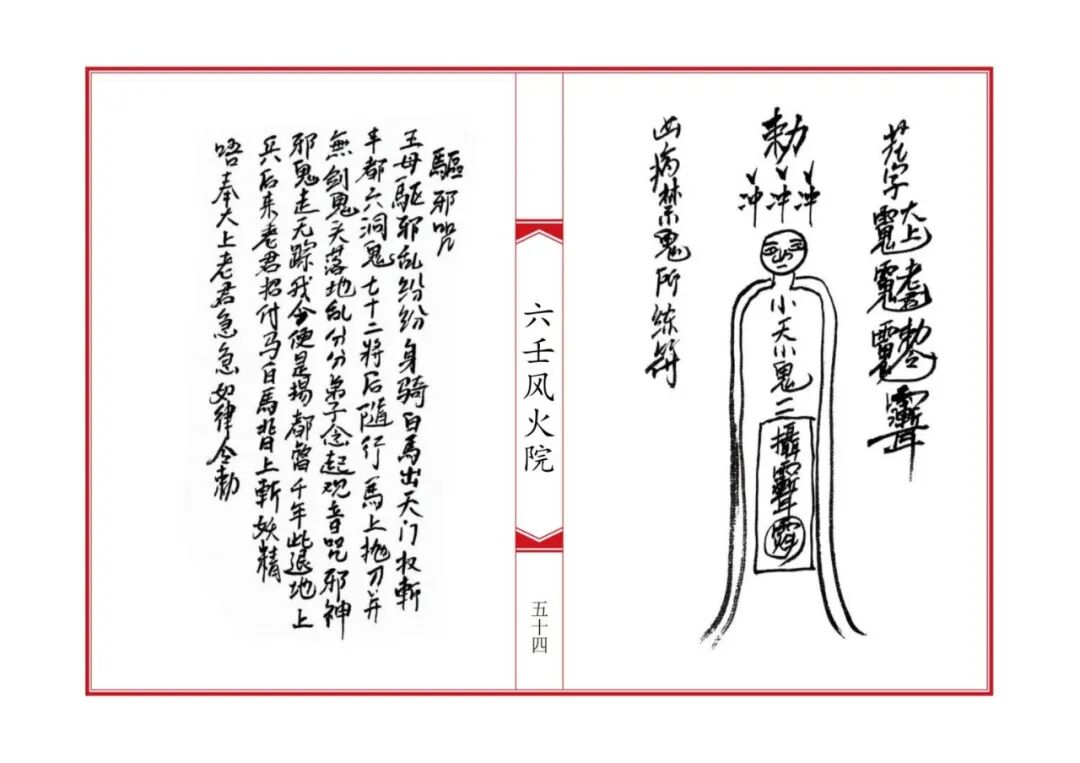 花字
太上老君勅令
勅
冲冲冲
小天小鬼二
攝
凶病禁鬼所练符
六壬风火院
五十四
驅邪咒
王母驱邪乱纷纷身骑白馬出天门收斬
丰都六洞鬼七十二將后隨行馬上抛刀并
無剑鬼头落地乱分分弟子念起观音咒邪神
邪鬼走无踪我今便是揚都督千年此退地上
兵后来老君招付马白馬背上斬妖精
唔奉大上老君急急如律令勅